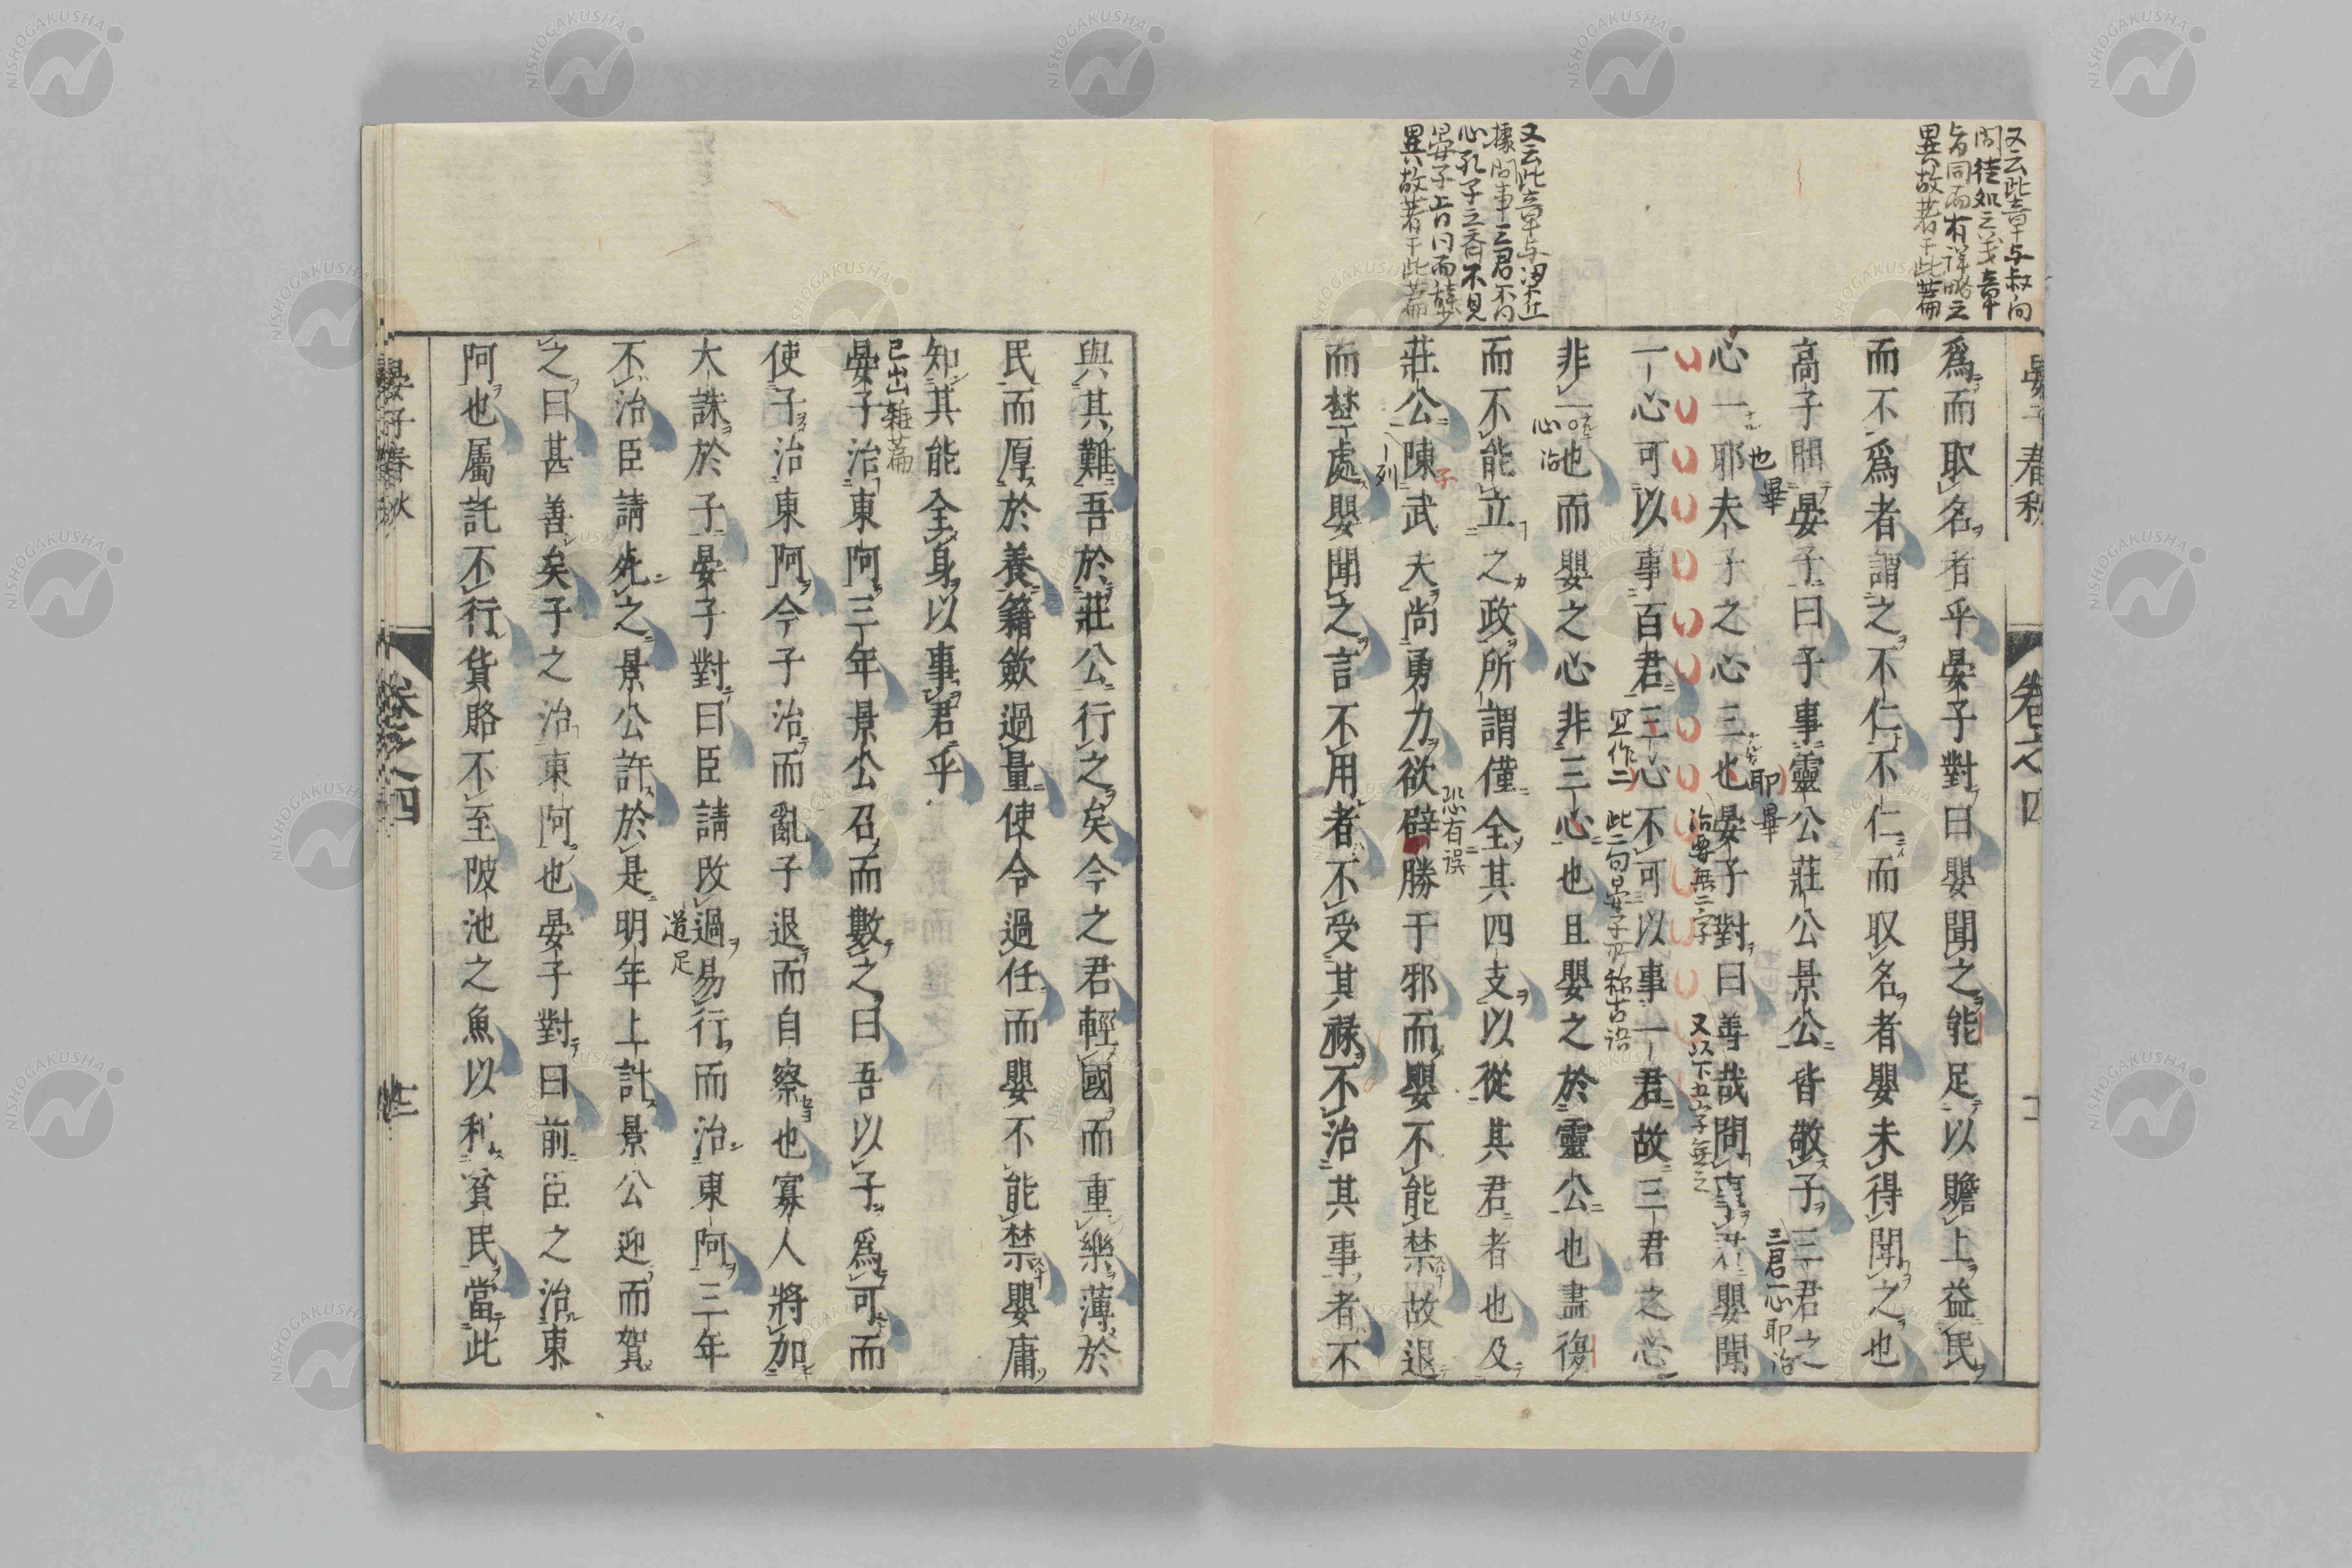 又云此章与叔向
問徒処之義章
旨同而有詳略之
異故著于此篇
又云此章与梁丘
據問事三君不同
心孔子之齊不見
晏子旨同而辞少
異故著于此篇
晏子春秋
卷之四
爲而取名者乎晏子對曰嬰聞之能足以贍上益民
而不爲者謂之不仁不仁而取名者嬰未得聞之也
高子問晏子曰子事靈公莊公景公皆敬子三君之
三君一心耶治
也畢
耶畢
心一耶夫子之心三也晏子對曰善哉問事君嬰聞
治要無二字
又以下五字無之
一心可以事百君三心不可以事一君故三君之心
宜作二
此二句晏子所称古语
非一也而嬰之心非三心也且嬰之於靈公也盡復
心治
而不能立之政所謂僅全其四支以從其君者也及
莊公陳武夫尚勇力欲辟勝于邪而嬰不能禁故退
子
列
恐有誤
而埜處嬰聞之言不用者不受其禄不治其事者不
與其難吾於莊公行之矣今之君輕國而重樂薄於
民而厚於養籍斂過量使令過任而嬰不能禁嬰庸
知其能全身以事君乎
已出雜篇
晏子治東阿三年景公召而數之曰吾以子爲可而
使子治東阿今子治而亂子退而自察也寡人將加
大誅於子晏子對曰臣請改過易行而治東阿三年
道
足
不治臣請死之景公許於是明年上計景公迎而賀
之曰甚善矣子之治東阿也晏子對曰前臣之治東
阿也屬託不行貨賂不至陂池之魚以利貧民當此
晏子春秋
卷之四